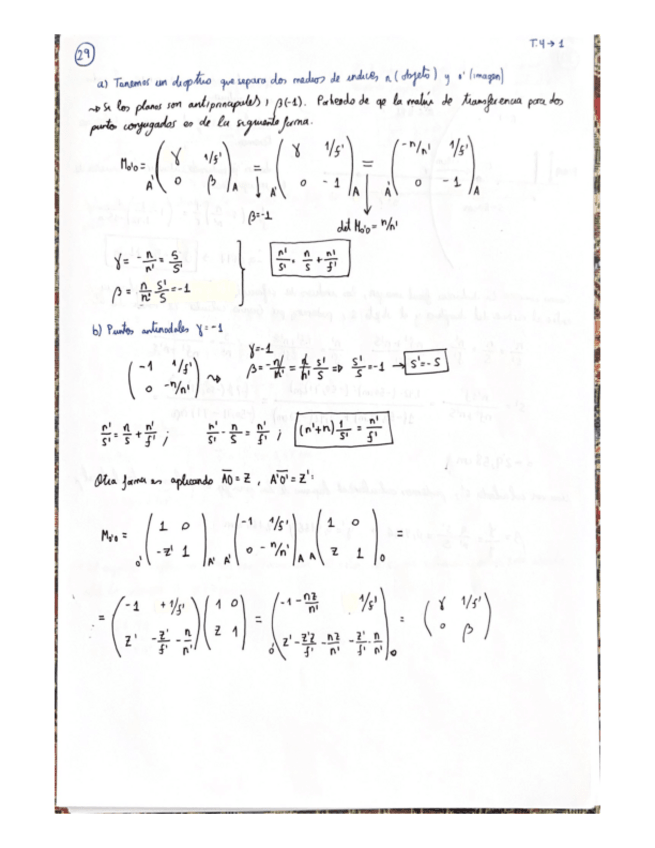 29
T.4 → 1
a) Tenemos un dioptrio que separa dos medios de indices n (objeto) y n' (imagen)
→ Si los planos son antiprincipales, β(-1). Partiendo de que la matriz de transferencia para dos
puntos conjugados es de la siguiente forma.
M₀'₀ = A' ( γ 1/f' ; 0 β ) A = A' ( γ 1/f' ; 0 -1 ) A = A' ( -n/n' 1/f' ; 0 -1 ) A
β=-1
det M₀'₀ = n/n'
γ = -n/n' = s/s'
n'/s' = n/s + n'/f'
β = n/n' s'/s = -1
b) Puntos antinodales γ=-1
( -1 1/f' ; 0 -n/n' ) ⇝ γ=-1
β = -n/n' = n/n' s'/s ⇒ s'/s = -1 → s'=-s
n'/s' = n/s + n'/f' ; n'/s' - n/s = n'/f' ; (n'+n) 1/s' = n'/f'
Otra forma es aplicando AO = z , A'O' = z' :
M₀'₀ = O' ( 1 0 ; -z' 1 ) A' A' ( -1 1/f' ; 0 -n/n' ) A A ( 1 0 ; z 1 ) O =
= ( -1 +1/f' ; z' -z'/f' - n/n' ) ( 1 0 ; z 1 ) = O' ( -1 - nz/n' 1/f' ; z' - z'z/f' - nz/n' - z'/f' · n/n' ) O = ( γ 1/f' ; 0 β )